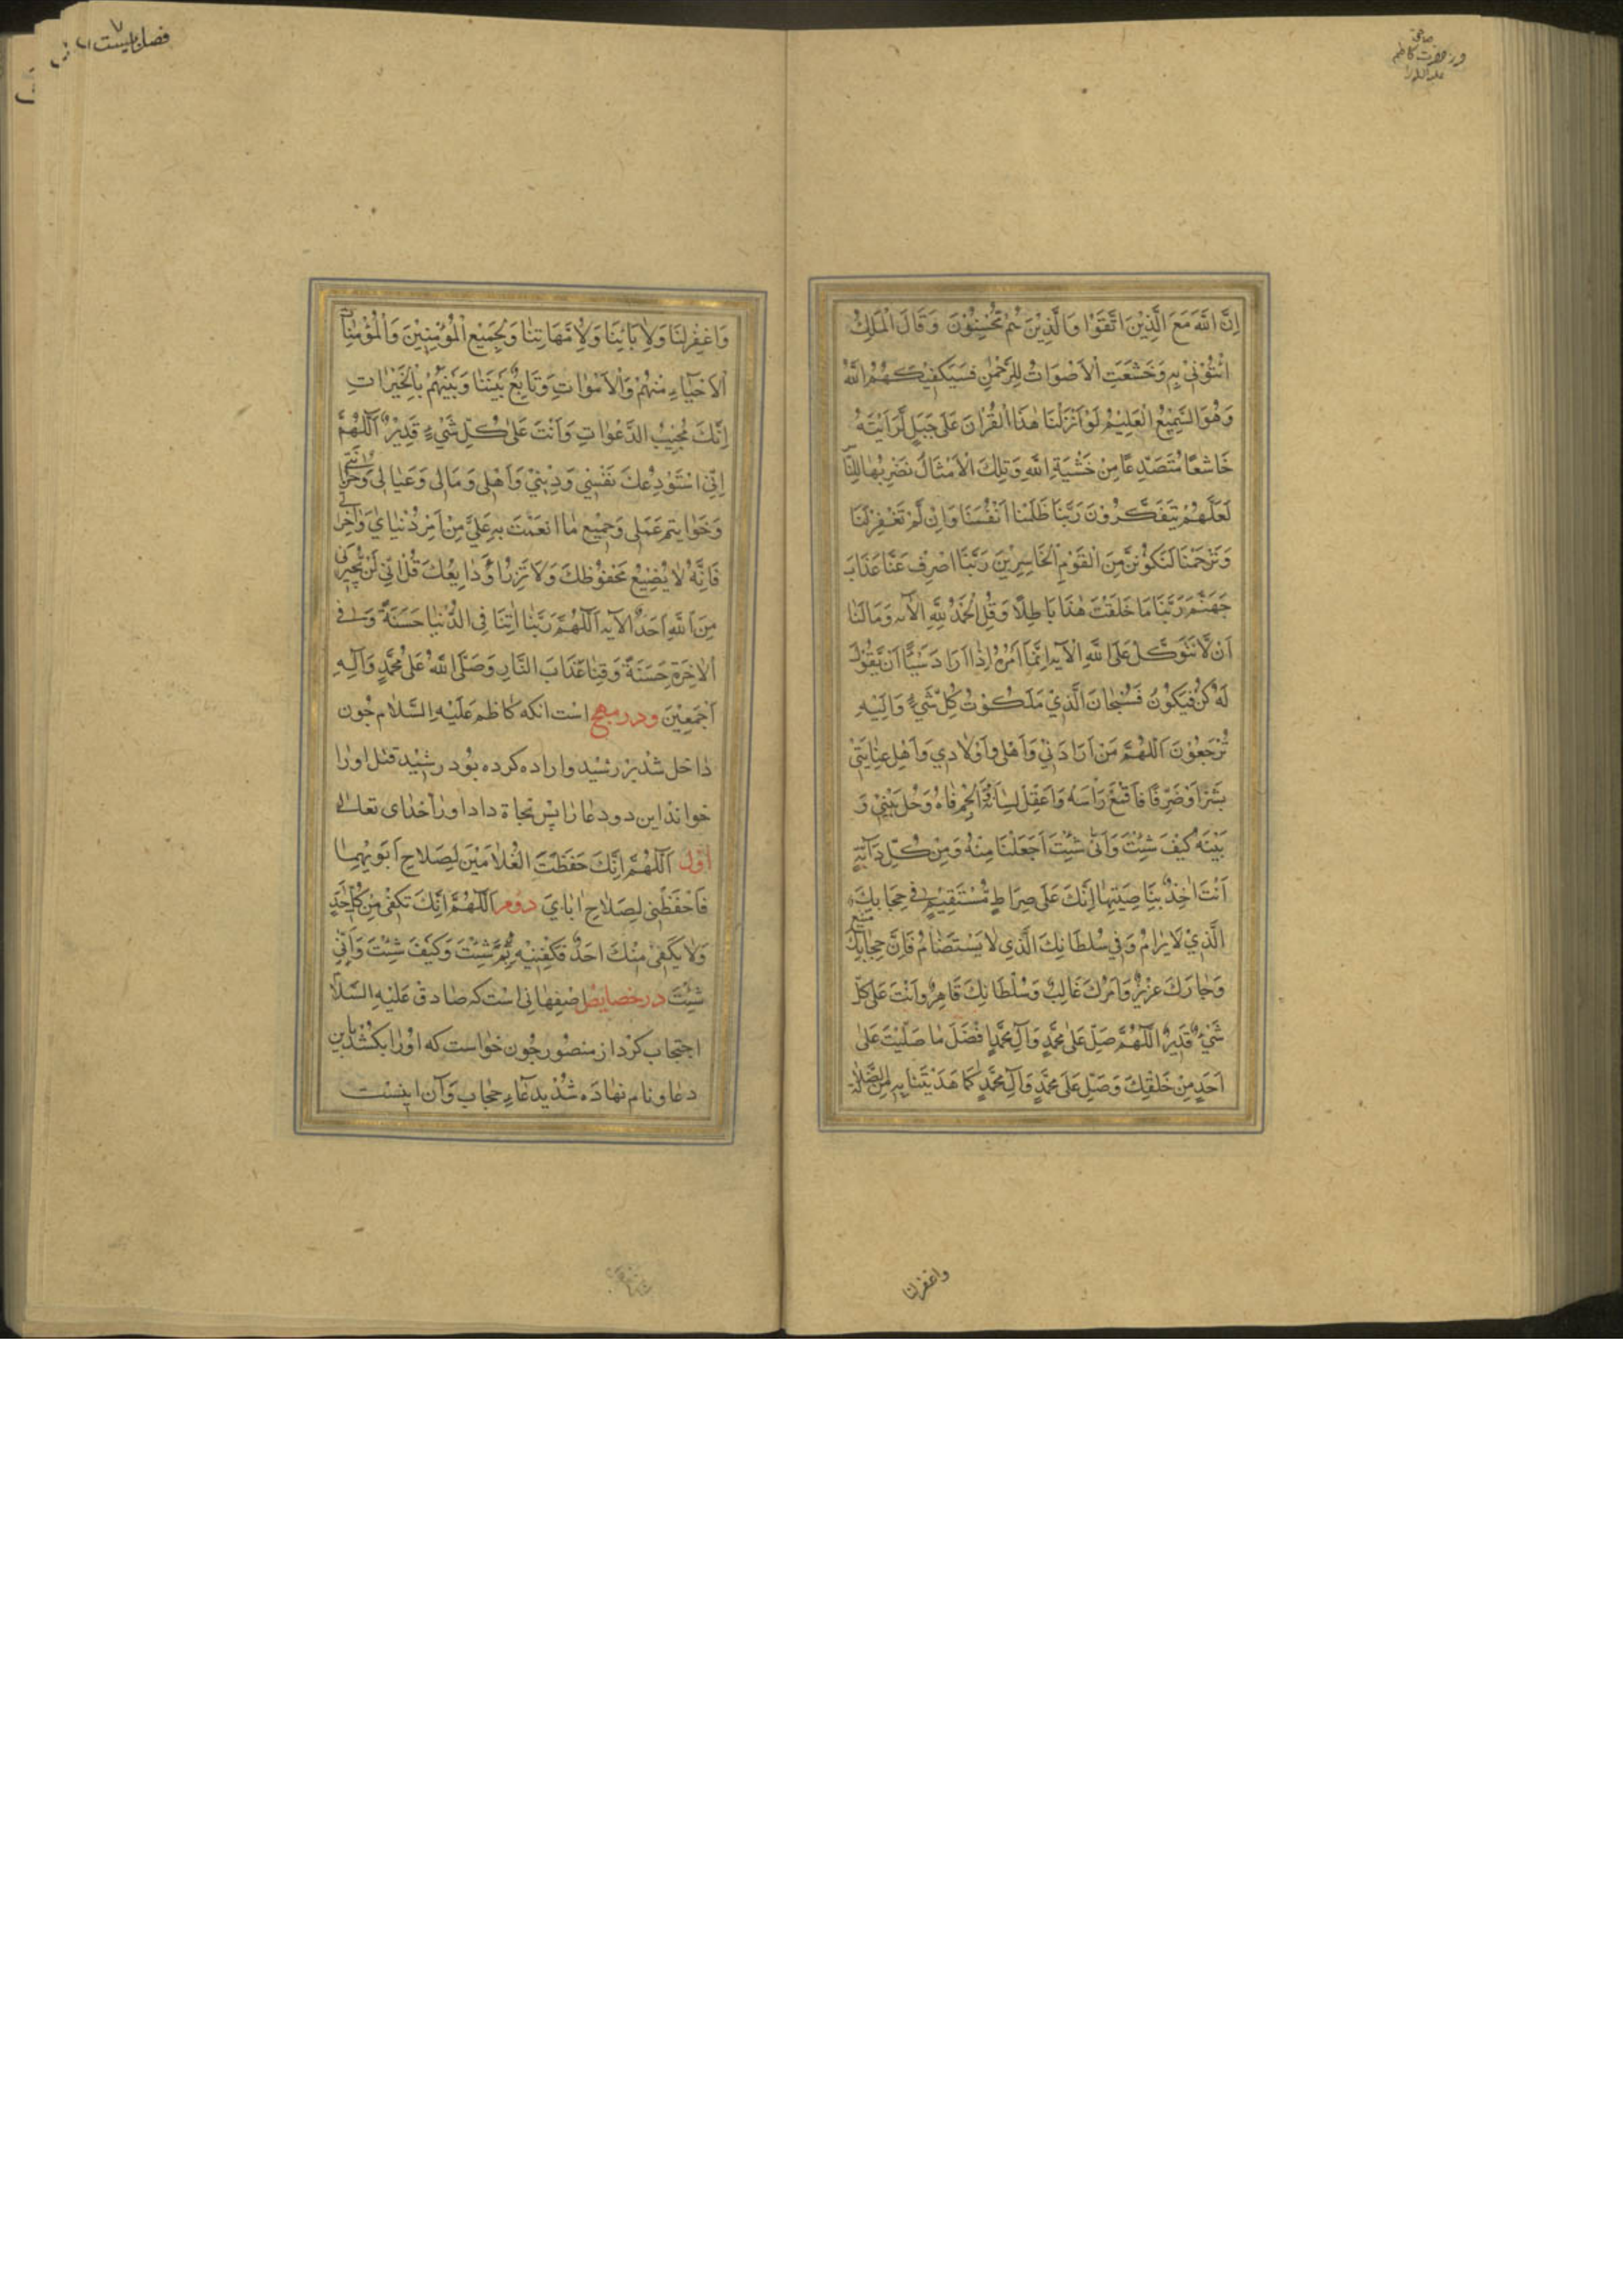 اِنَّ اللّٰهَ مَعَ الَّذِيْنَ اتَّقَوْا وَالَّذِيْنَ هُمْ مُحْسِنُوْنَ وَقَالَ الْمَلِكُ
ائْتُوْنِيْ بِهِ وَخَشَعَتِ الْاَصْوَاتُ لِلرَّحْمٰنِ فَسَيَكْفِيْكَهُمُ اللّٰهُ
وَهُوَ السَّمِيْعُ الْعَلِيْمُ لَوْ اَنْزَلْنَا هٰذَا الْقُرْاٰنَ عَلٰى جَبَلٍ لَّرَاَيْتَهُ
خَاشِعًا مُتَصَدِّعًا مِنْ خَشْيَةِ اللّٰهِ وَتِلْكَ الْاَمْثَالُ نَضْرِبُهَا لِلنَّا
لَعَلَّهُمْ يَتَفَكَّرُوْنَ رَبَّنَا ظَلَمْنَا اَنْفُسَنَا وَاِنْ لَمْ تَغْفِرْ لَنَا
وَتَرْحَمْنَا لَنَكُوْنَنَّ مِنَ الْقَوْمِ الْخَاسِرِيْنَ رَبَّنَا اصْرِفْ عَنَّا عَذَابَ
جَهَنَّمَ رَبَّنَا مَا خَلَقْتَ هٰذَا بَاطِلًا وَقُلِ الْحَمْدُ لِلّٰهِ الْآيه وَمَا لَنَا
اَنْ لَّا نَتَوَكَّلَ عَلَى اللّٰهِ الْآيه اِنَّمَا اَمْرُهُ اِذَا اَرَادَ شَيْئًا اَنْ يَّقُوْلَ
لَهُ كُنْ فَيَكُوْنُ فَسُبْحَانَ الَّذِيْ مَلَكُوْتُ كُلِّ شَيْءٍ وَاِلَيْهِ
تُرْجَعُوْنَ اَللّٰهُمَّ مَنْ اَرَادَنِيْ وَاَهْلِي وَاَوْلَادِي وَاَهْلَ عِنَايَتِيْ
بَشَرًّا اَوْ ضَرِّ فَاقْمَعْ رَاْسَهُ وَاعْقِلْ لِسَانَهُ وَالْجِمْ فَاهُ وَحُلْ بَيْنِيْ وَ
بَيْنَهُ كَيْفَ شِئْتَ وَاَنّٰى شِئْتَ اجْعَلْنَا مِنْهُ وَمِنْ كُلِّ دَابَّةٍ
اَنْتَ اٰخِذٌ بِنَاصِيَتِهَا اِنَّكَ عَلٰى صِرَاطٍ مُّسْتَقِيْمٍ فِي حِجَابِكَ
الَّذِيْ لَا يُرَامُ وَفِي سُلْطَانِكَ الَّذِي لَا يُسْتَضَامُ فَاِنَّ حِجَابَكَ مَنِيْعٌ
وَجَارَكَ عَزِيْزٌ وَاَمْرُكَ غَالِبٌ وَسُلْطَانَكَ قَاهِرٌ وَاَنْتَ عَلٰى كُلِّ
شَيْءٍ قَدِيْرٌ اَللّٰهُمَّ صَلِّ عَلٰى مُحَمَّدٍ وَآلِ مُحَمَّدٍ اَفْضَلَ مَا صَلَّيْتَ عَلٰى
اَحَدٍ مِنْ خَلْقِكَ وَصَلِّ عَلٰى مُحَمَّدٍ وَآلِ مُحَمَّدٍ كَمَا هَدَيْتَنَا بِهِ مِنَ الضَّلَالَة
واغفرلنا
وَاغْفِرْ لَنَا وَلِاٰبَائِنَا وَلِاُمَّهَاتِنَا وَلِجَمِيْعِ الْمُؤْمِنِيْنَ وَالْمُؤْمِنَاتِ
الْاَحْيَاءِ مِنْهُمْ وَالْاَمْوَاتِ وَتَابِعْ بَيْنَنَا وَبَيْنَهُمْ بِالْخَيْرَاتِ
اِنَّكَ مُجِيْبُ الدَّعَوَاتِ وَاَنْتَ عَلٰى كُلِّ شَيْءٍ قَدِيْرٌ اَللّٰهُمَّ
اِنِّي اسْتَوْدِعُكَ نَفْسِيْ وَدِيْنِيْ وَاَهْلِي وَمَالِي وَعَيَالِي وَ
وَخَوَاتِيْمَ عَمَلِي وَجَمِيْعَ مَا اَنْعَمْتَ بِهِ عَلَيَّ مِنْ اَمْرِ دُنْيَايَ وَاٰخِرَتِي
فَاِنَّهُ لَا يُضِيْعُ مَحْفُوْظُكَ وَلَا تُرْزَأُ وَدَايِعُكَ قُلْ اِنِّي لَنْ يُّجِيْرَنِي
مِنَ اللّٰهِ اَحَدٌ الْآيه اَللّٰهُمَّ رَبَّنَا اٰتِنَا فِي الدُّنْيَا حَسَنَةً وَفِي
الْاٰخِرَةِ حَسَنَةً وَقِنَا عَذَابَ النَّارِ وَصَلَّى اللّٰهُ عَلٰى مُحَمَّدٍ وَآلِهِ
اَجْمَعِيْنَ ودر مهج است انكه كاظم عَلَيْهِ السَّلَام چون
داخل شد بر رشيد واراده كرده بود رشيد قتل اورا
خواند اين دو دعا را پس نجاة داد اورا خداى تعالى
اول اَللّٰهُمَّ اِنَّكَ حَفِظْتَ الْغُلَامَيْنِ لِصَلَاحِ اَبَوَيْهِمَا
فَاحْفَظْنِي لِصَلَاحِ اٰبَايَ دوم اَللّٰهُمَّ اِنَّكَ تَكْفِي مِنْ كُلِّ اَحَدٍ
وَلَا يَكْفِي مِنْكَ اَحَدٌ فَاكْفِنِيْهِ بِمَ شِئْتَ وَكَيْفَ شِئْتَ وَاَنّٰى
شِئْتَ در خصايص اصفهانى است كه صادق عَلَيْهِ السَّلَا
احتجاب كرد از منصور چون خواست كه اورا بكشد باين
دعا ونام نهاده شد بدعاء حجاب وآن اينست